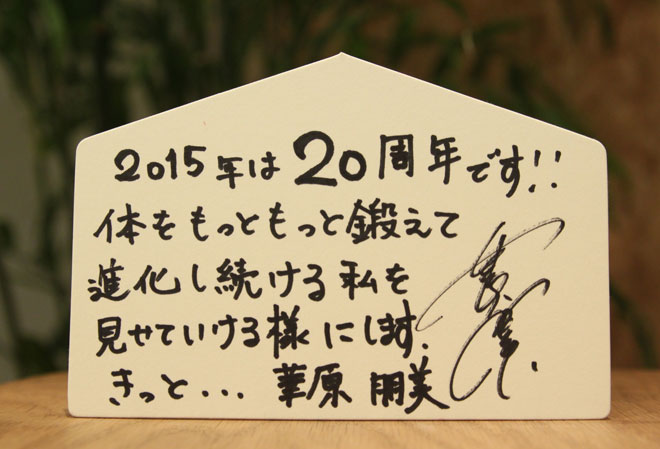 2015年は20周年です!!
体をもっともっと鍛えて
進化し続ける私を
見せていける様にします.
きっと... 華原 朋美